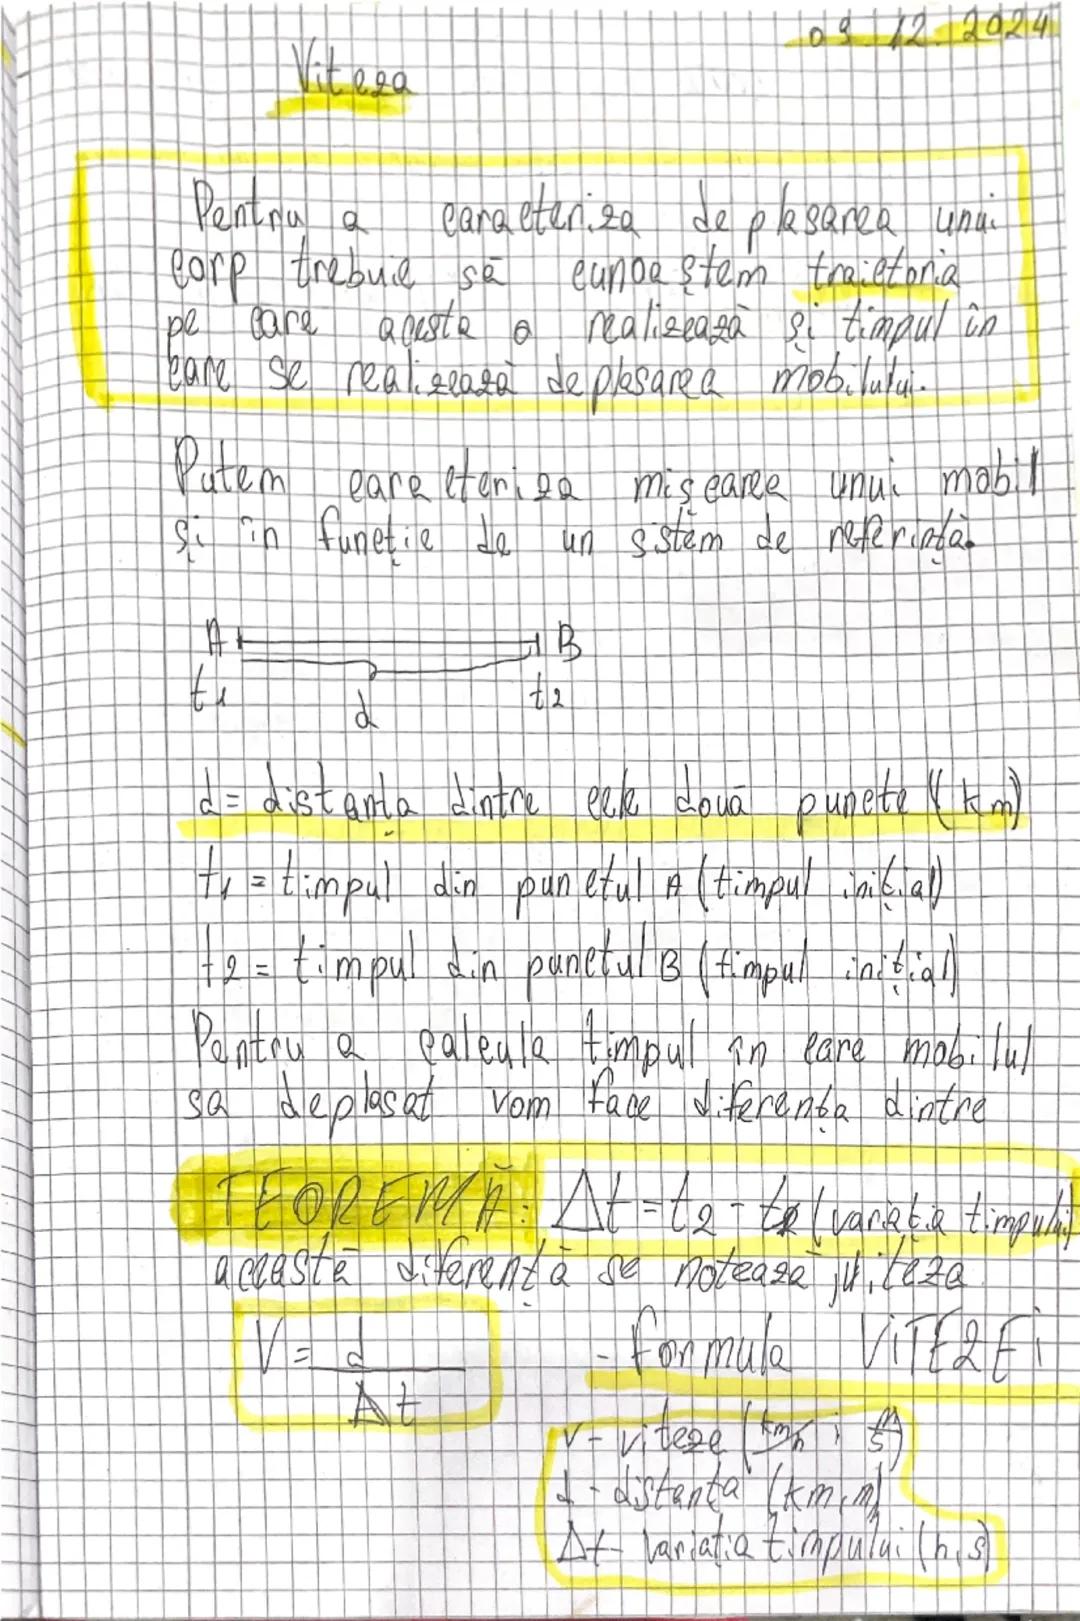 09.12.2024
Viteza
Pentru a caracteriza deplasarea unui
corp trebuie să cunoaștem traictoria
pe care acesta o realizează și timpul în
care se realizează deplasarea mobilului.
Putem caracteriza mișcarea unui mobil
și în funcție de un sistem de referință.
A B
t1 d t2
d = distanța dintre cele două puncte (km)
t1 = timpul din punctul A (timpul inițial)
t2 = timpul din punctul B (timpul inițial)
Pentru a calcula timpul în care mobilul
sa deplasat vom face diferența dintre
TEOREMĂ: Δt = t2 - t1 (variația timpului)
această diferență se notează viteza
V = d / Δt - formula VITEZEI
v - viteze (km/h ; m/s)
d - distanța (km, m)
Δt - variația timpului (h, s)